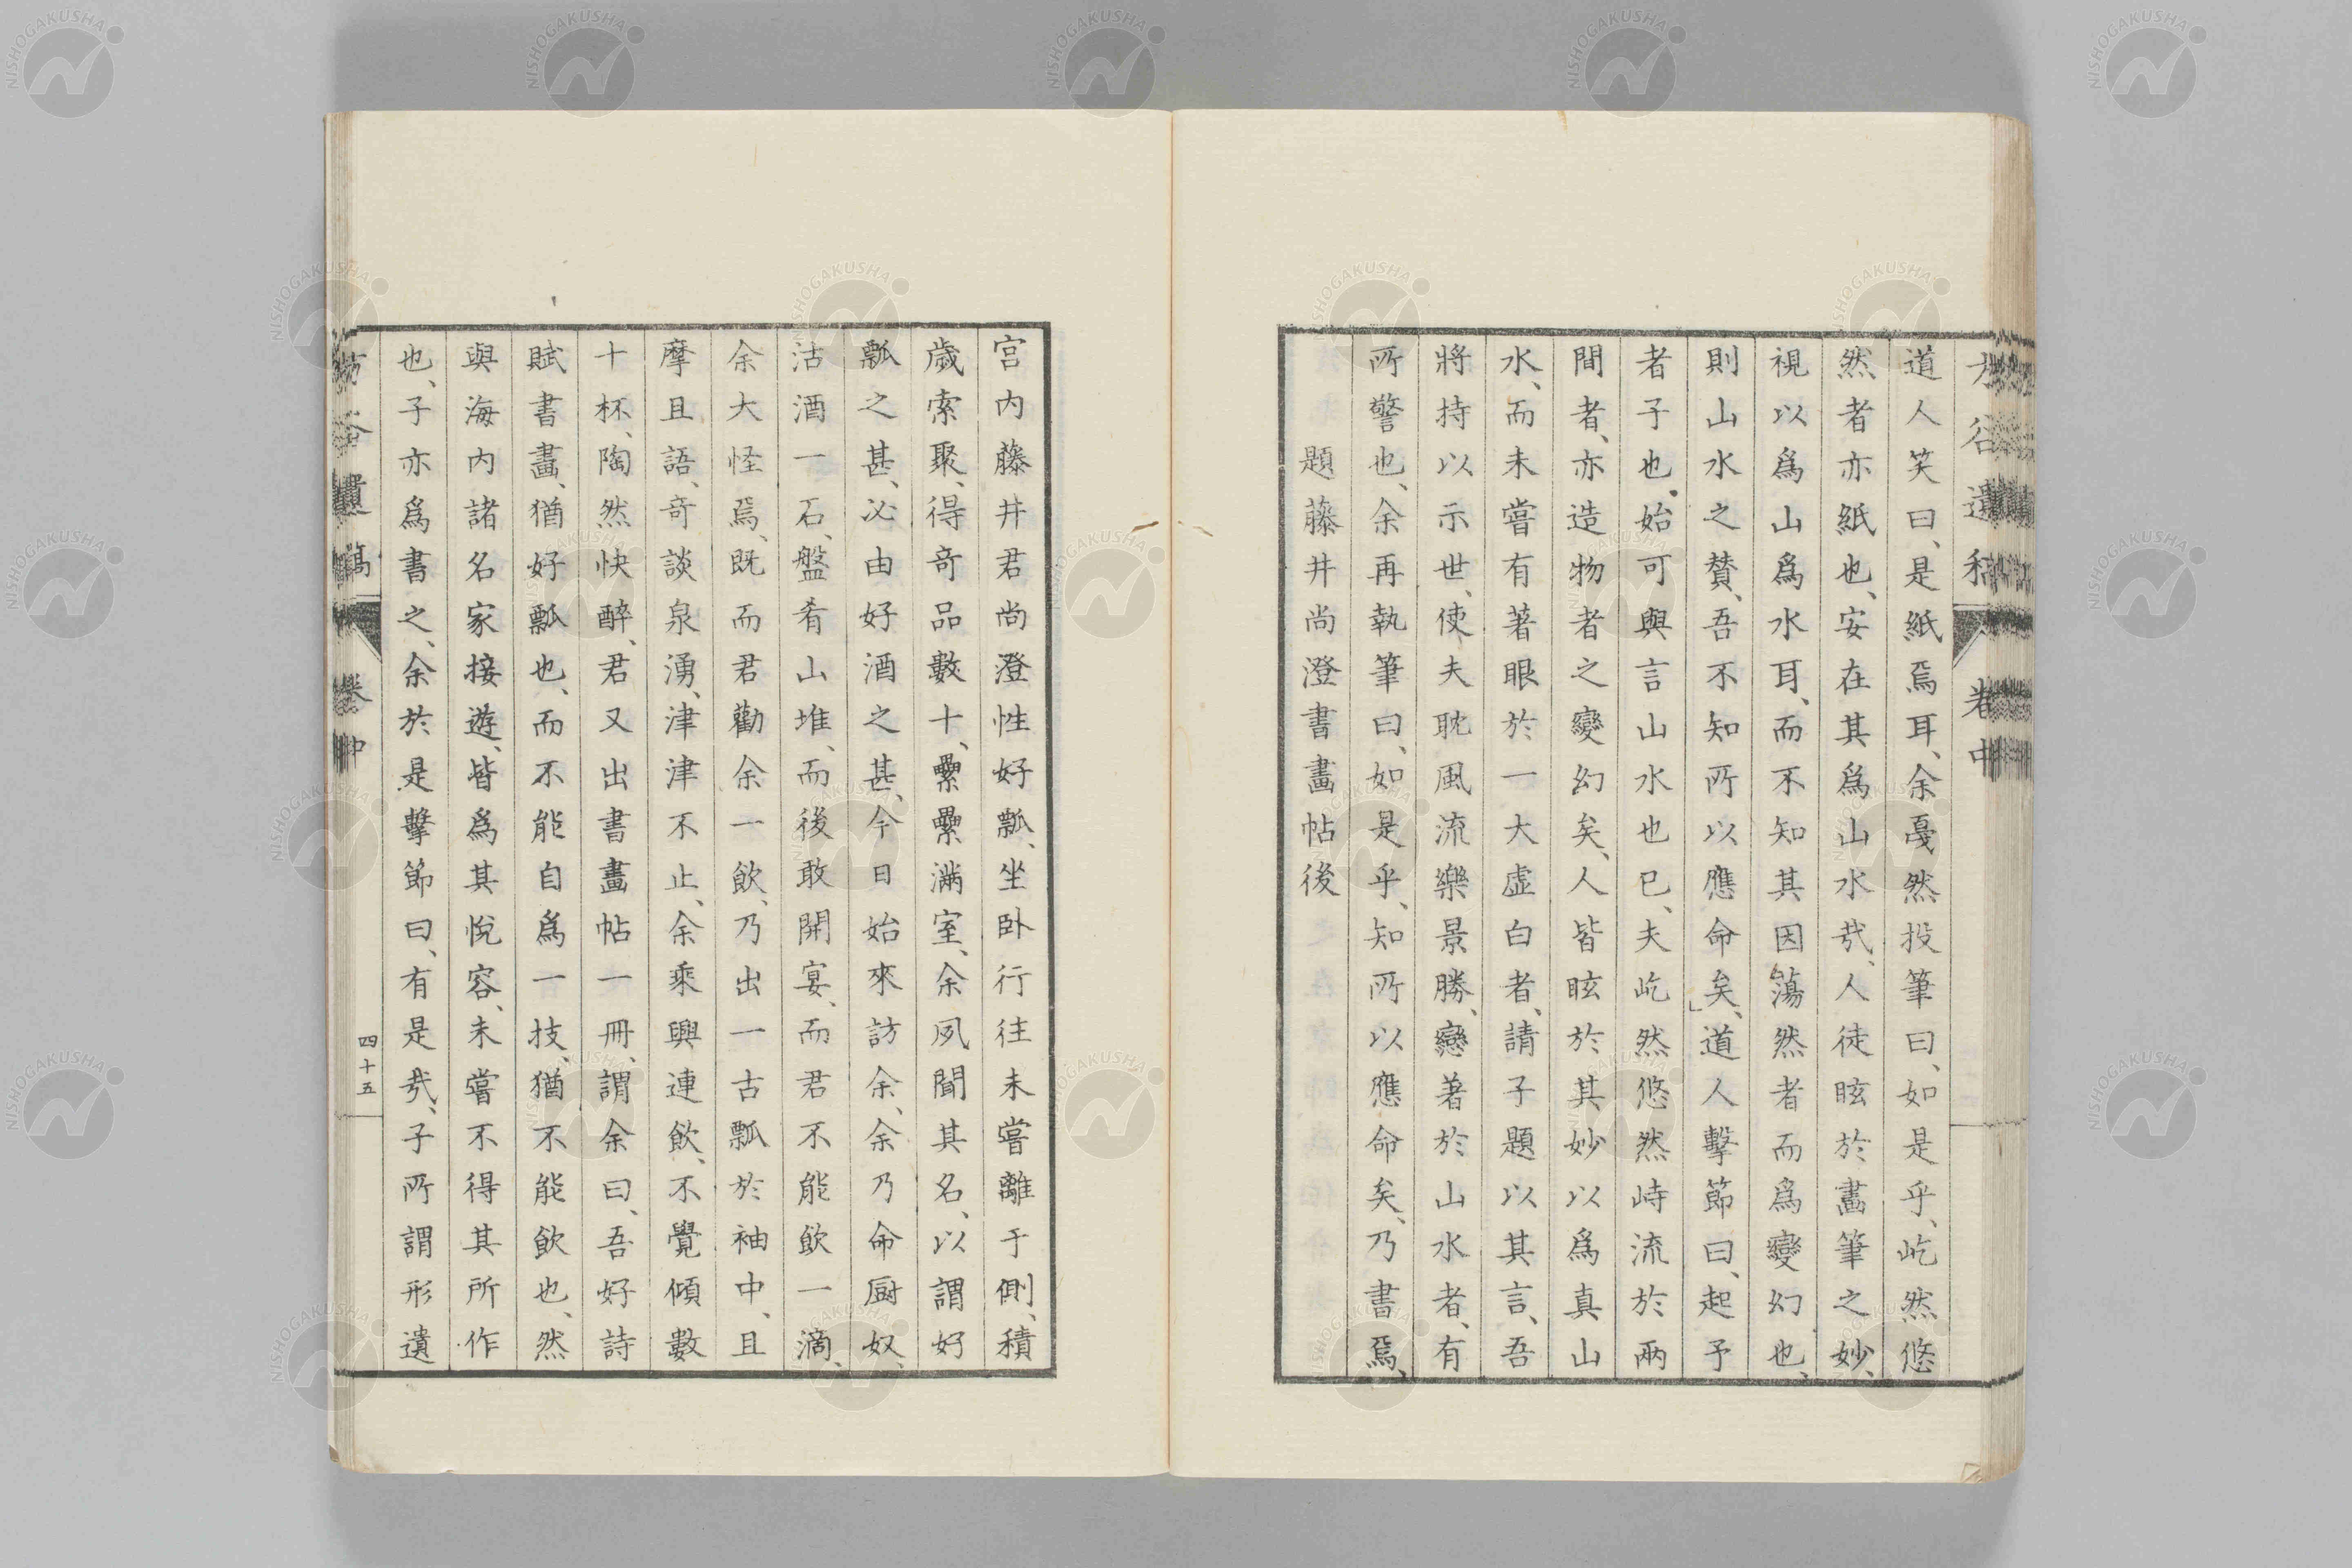 方谷遺稿　卷中
道人笑曰、是紙焉耳、余戞然投筆曰、如是乎、屹然悠
然者亦紙也、安在其爲山水哉、人徒眩於畵筆之妙、
視以爲山爲水耳、而不知其因蕩然者而爲變幻也、
則山水之賛、吾不知所以應命矣、」道人擊節曰、起予
者子也、始可與言山水也已、夫屹然悠然峙流於兩
間者、亦造物者之變幻矣、人皆眩於其妙以爲真山
水、而未嘗有著眼於一大虛白者、請子題以其言、吾
將持以示世、使夫耽風流樂景勝、戀著於山水者、有
所警也、余再執筆曰、如是乎、知所以應命矣、乃書焉、
題藤井尚澄書畵帖後
宮內藤井君尚澄性好瓢、坐卧行往未嘗離于側、積
歲索聚、得奇品數十、纍纍滿室、余夙聞其名、以謂好
瓢之甚、必由好酒之甚、今日始來訪余、余乃命厨奴、
沽酒一石、盤肴山堆、而後敢開宴、而君不能飲一滴、
余大怪焉、既而君勸余一飲、乃出一古瓢於袖中、且
摩且語、奇談泉湧、津津不止、余乘興連飲、不覺傾數
十杯、陶然快醉、君又出書畵帖一冊、謂余曰、吾好詩
賦書畵、猶好瓢也、而不能自爲一技、猶不能飲也、然
與海內諸名家接遊、皆爲其悅容、未嘗不得其所作
也、子亦爲書之、余於是擊節曰、有是哉、子所謂形遺
方谷遺稿　卷中　四十五